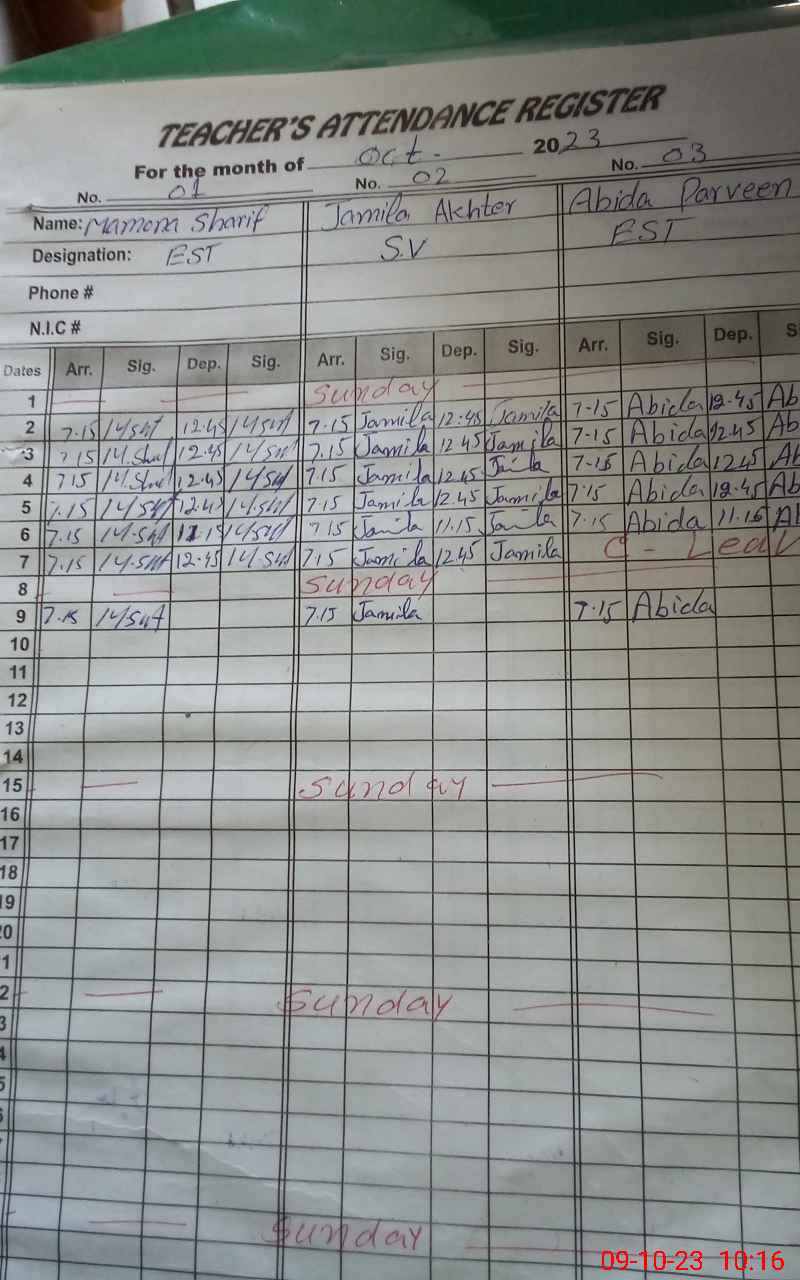 TEACHER'S ATTENDANCE REGISTER
For the month of Oct. 2023
No. 01 No. 02 No. 03
Name: Mamona Sharif Jamila Akhter Abida Parveen
Designation: EST S.V EST
Phone #
N.I.C #
Dates Arr. Sig. Dep. Sig. Arr. Sig. Dep. Sig. Arr. Sig. Dep. S
1 Sunday
2 7.15 12.45 7.15 Jamila 12.45 Jamila 7.15 Abida 12.45 Ab
3 7.15 12.45 7.15 Jamila 12.45 Jamila 7.15 Abida 12.45 Ab
4 7.15 12.45 7.15 Jamila 12.45 7.15 Abida 12.45 Ab
5 7.15 12.45 7.15 Jamila 12.45 Jamila 7.15 Abida 12.45 Ab
6 7.15 11.15 7.15 11.15 7.15 Abida 11.15 Ab
7 7.15 12.45 7.15 Jamila 12.45 Jamila C - Leav
8 Sunday
9 7.15 7.15 Jamila 7.15 Abida
10
11
12
13
14
15 Sunday
16
17
18
19
20
1
2 Sunday
3
4
5
Sunday
09-10-23 10:16